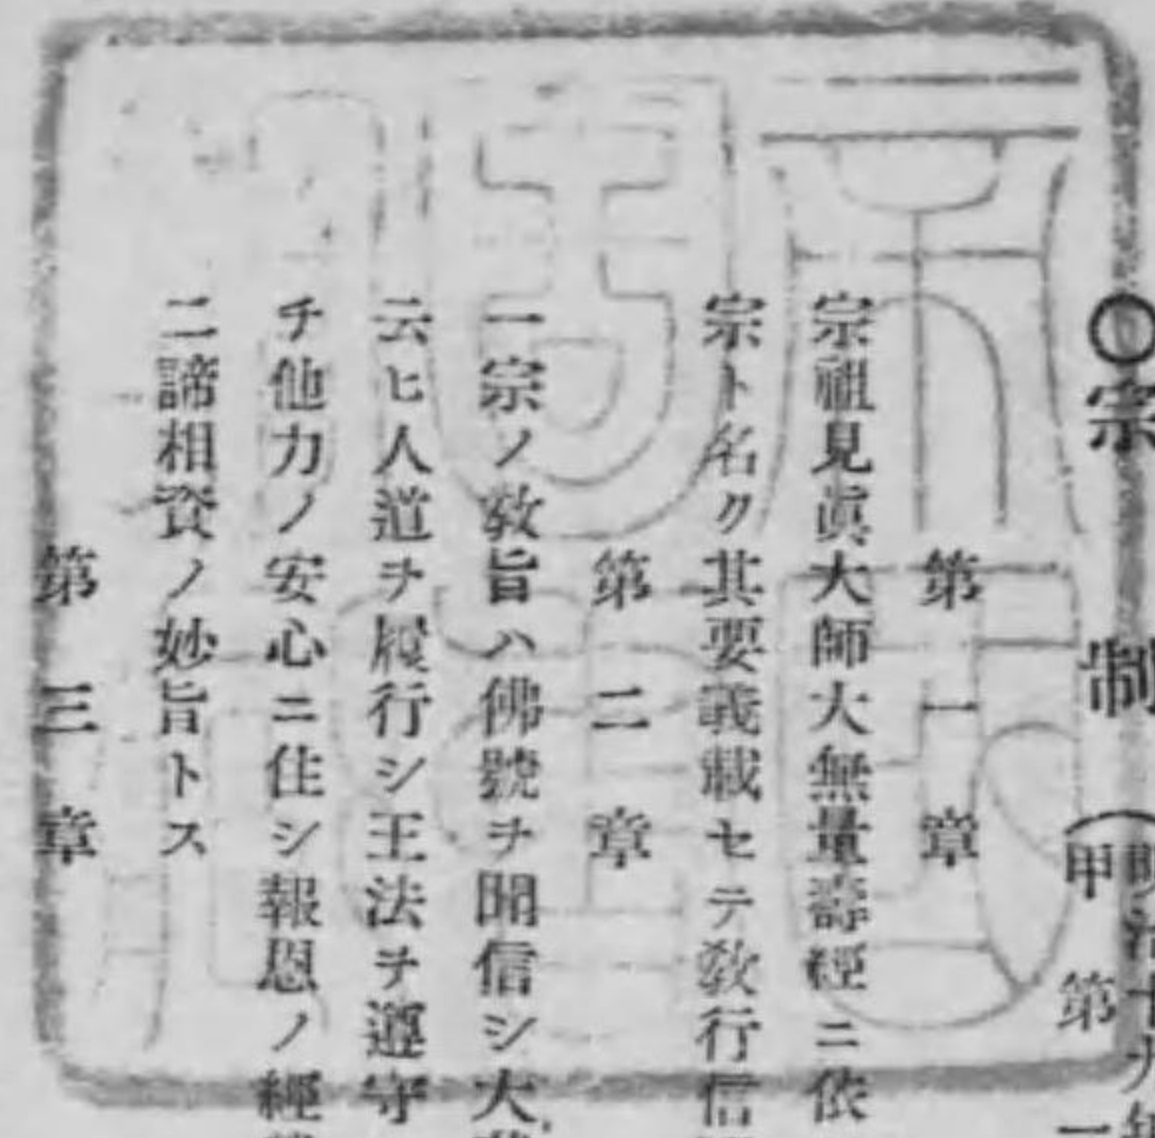 ○宗制
(明治十九年
甲第一
第一章
宗祖見眞大師大無量壽經ニ依
宗ト名ク其要義載セテ敎行信
第二章
一宗ノ敎旨ハ佛號ヲ聞信シ大
云ヒ人道ヲ履行シ王法ヲ遵守
チ他力ノ安心ニ住シ報恩ノ經
二諦相資ノ妙旨トス
第三章